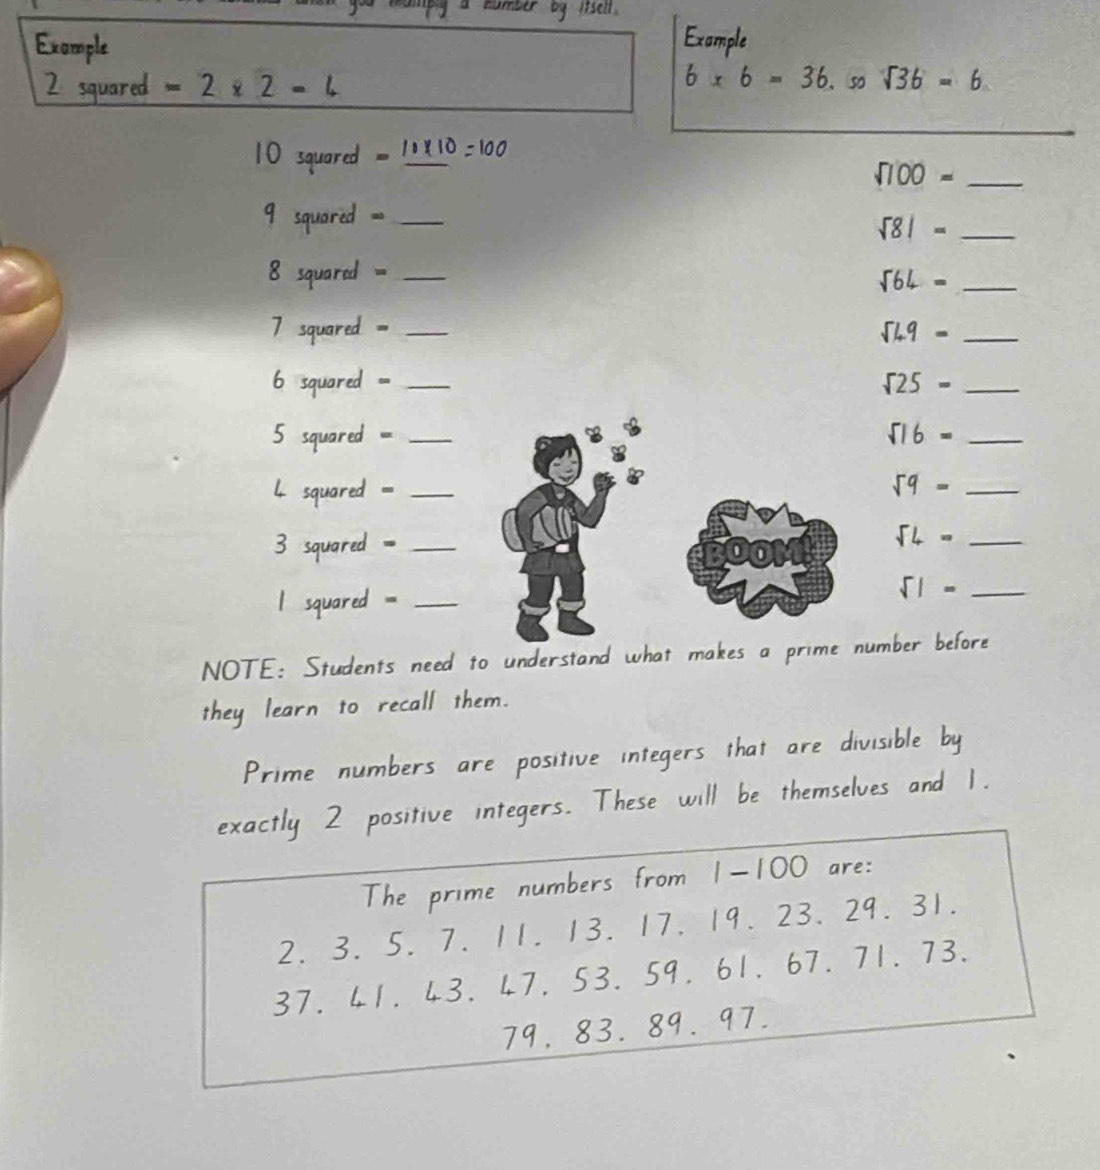 you multiply a number by itself.
Example
2 squared = 2 x 2 = 4
Example
6 x 6 = 36. so √36 = 6.
10 squared = 10x10=100
9 squared = ___
8 squared = ___
7 squared = ___
6 squared = ___
5 squared = ___
4 squared = ___
3 squared = ___
1 squared = ___
√100 = ___
√81 = ___
√64 = ___
√49 = ___
√25 = ___
√16 = ___
√9 = ___
√4 = ___
√1 = ___
BOOM!
NOTE: Students need to understand what makes a prime number before
they learn to recall them.
Prime numbers are positive integers that are divisible by
exactly 2 positive integers. These will be themselves and 1.
The prime numbers from 1-100 are:
2. 3. 5. 7. 11. 13. 17. 19. 23. 29. 31.
37. 41. 43. 47. 53. 59. 61. 67. 71. 73.
79. 83. 89. 97.